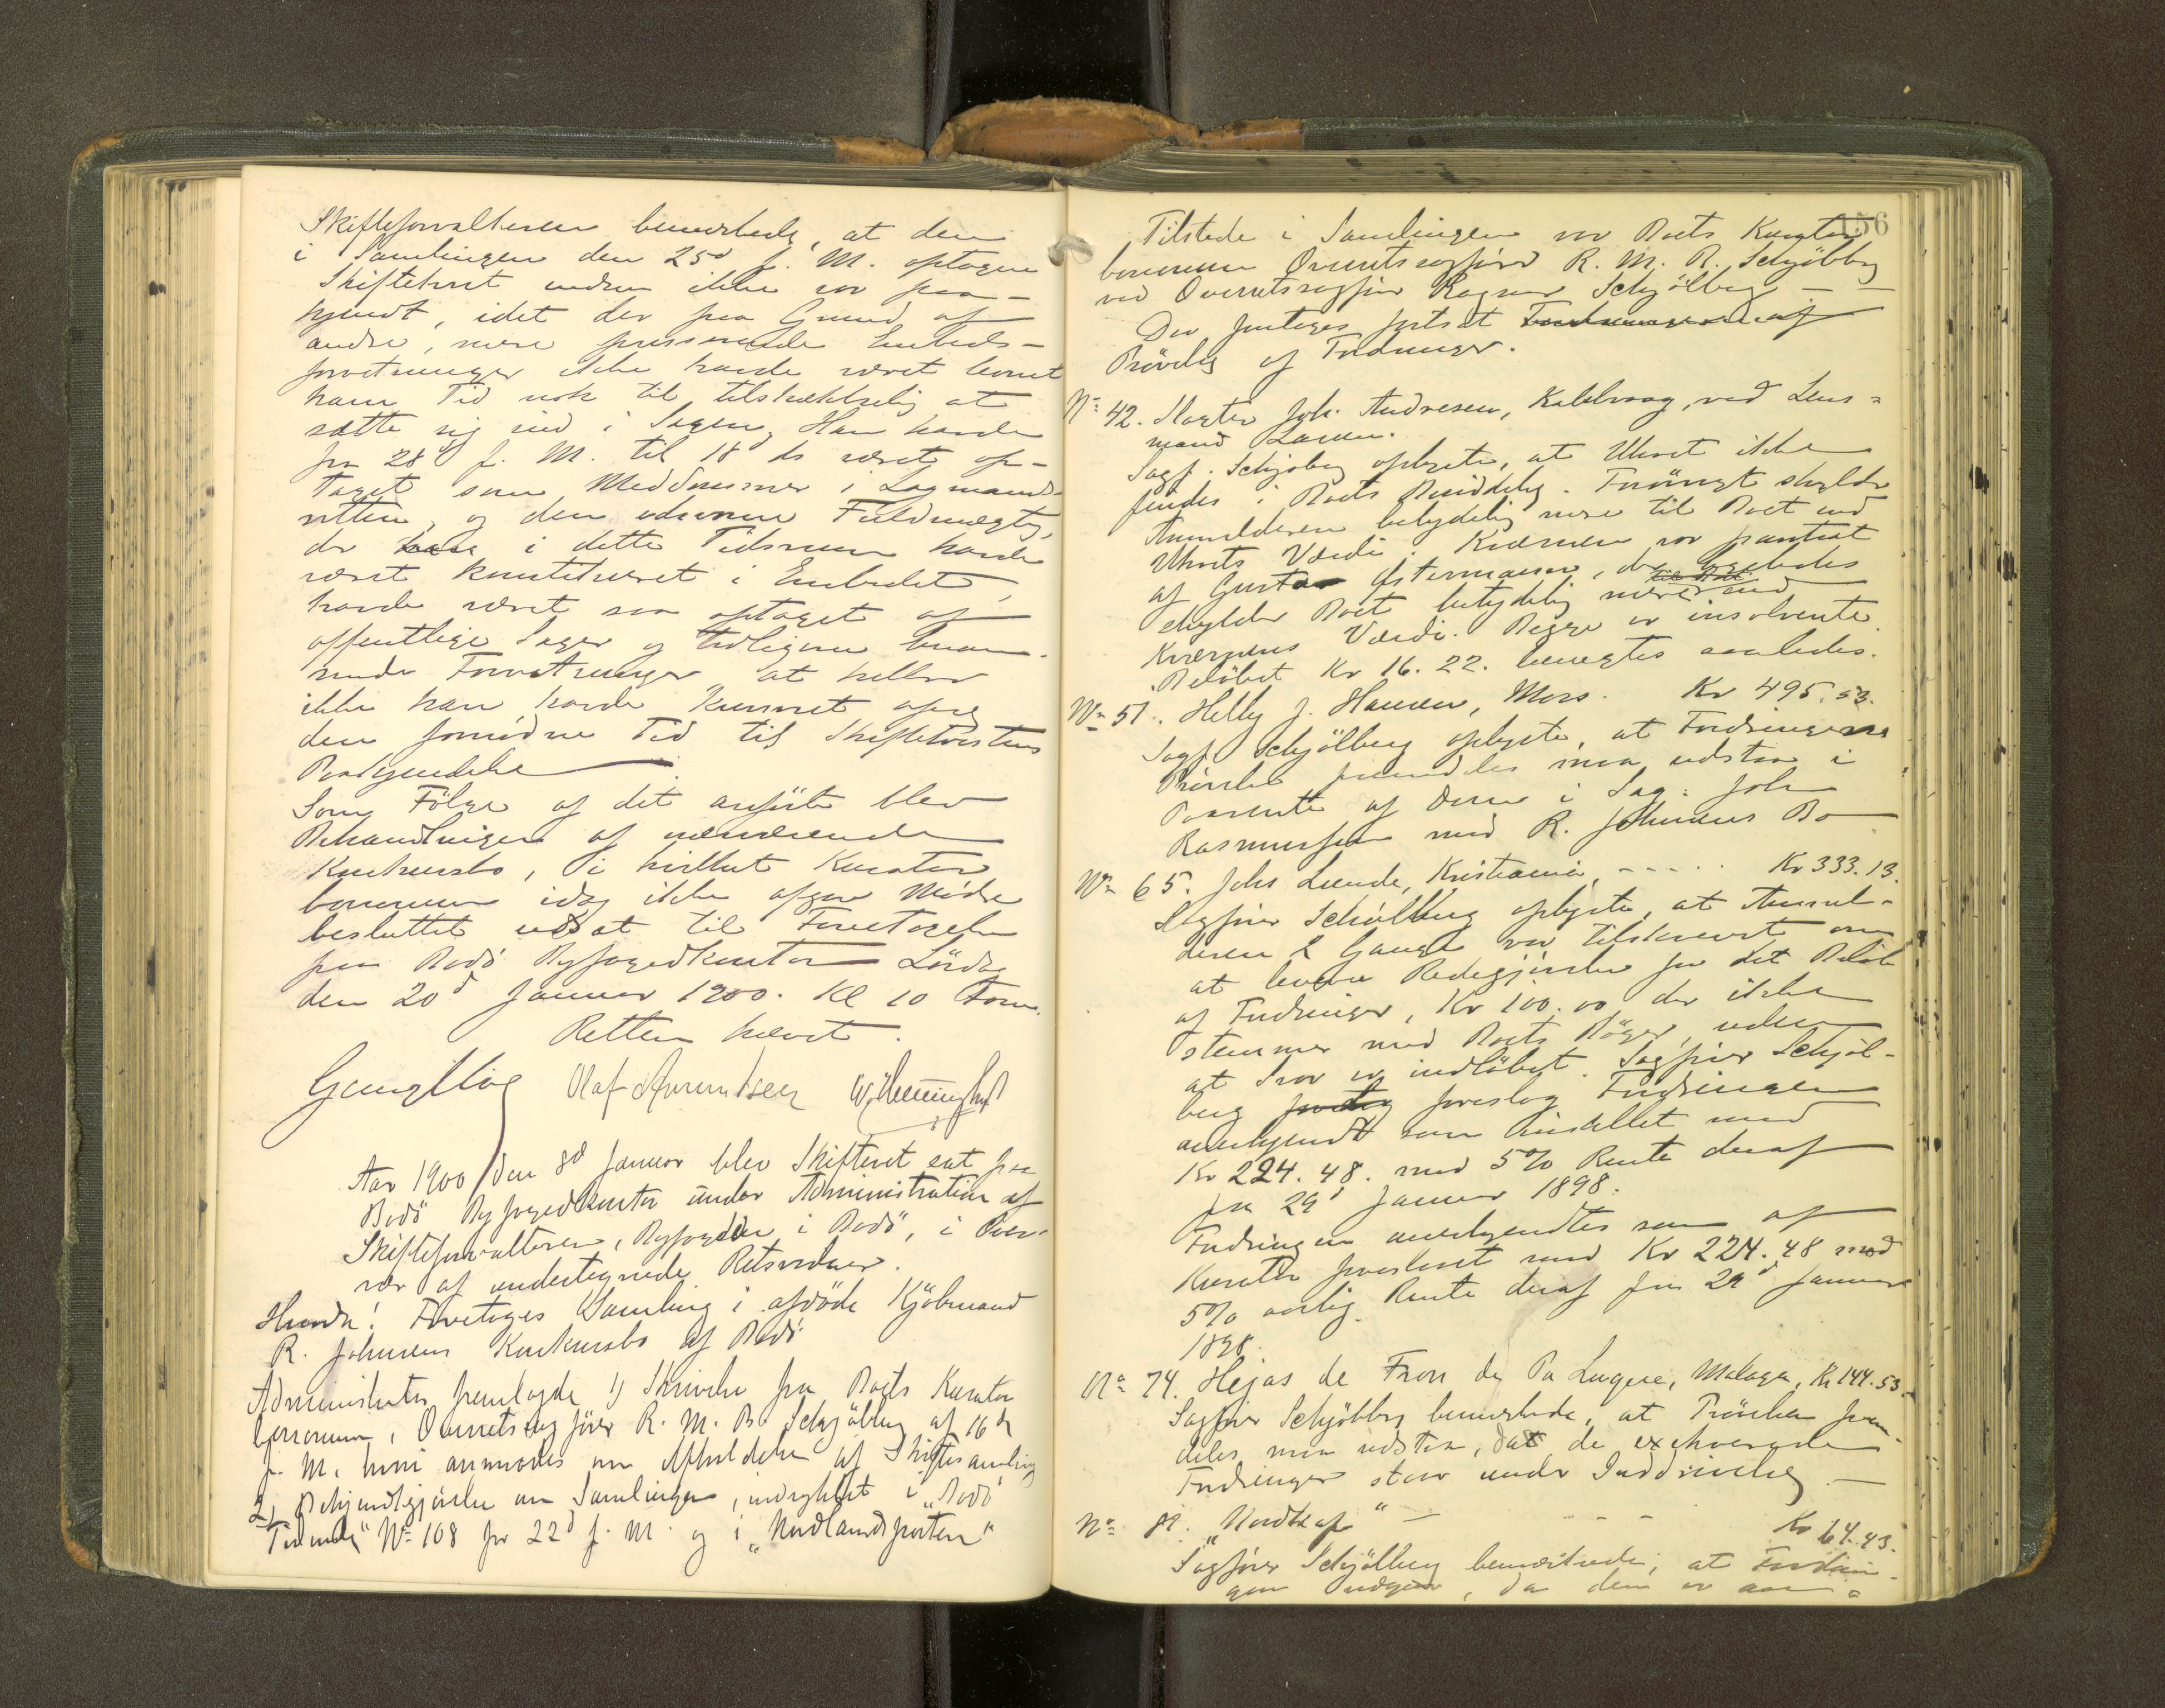 Skifteforvalteren bemærkede, at den
i Samlingen den 25d f. M. optagne
Skiftetvist endnu ikke var paa-
kjendt, idet der paa Grund af
andre, mere presserende Embeds-
forretninger ikke havde været levnet
ham Tid nok til tilstrækkelig at
sætte sig ind i Sagen. Han havde
fra 28d f. M. til 18d ds været op-
taget som Meddommer i Lagmands-
retten, og den edsvorne Fuldmægtig,
der i dette Tidsrum havde
været konstitueret i Embedet,
havde været saa optaget af
offentlige Sager og tidligere
Forretninger at heller
ikke han havde kunnet afse
den fornødne Tid til Skiftetvistens
Paakjendelse
Som Følge af det anførte blev
Behandlingen af nærværende
Konkursbo, i hvilket Kurator
bonorum idag ikke afgav Møde
besluttet udsat til Foretagelse
paa Bodö Byfogedkontor Lördag
den 20d Januar 1900. Kl 10 Form.
Retten hævet.
Olaf Amundsen
Aar 1900 den 8d Januar blev Skifteret sat paa
Bodö Byfogedkontor under Administration af
Skifteforvalteren, Byfogden i Bodö, i Over-
vær af undertegnede Retsvidner.
Hvorda! Foretoges Samling i afdöde Kjöbmand
R. Johnsens Konkursbo af Bodö
Administrator fremlagde 1) Skrivelse fra Boets Kurator
bonorum, Overretssagförer R. M. B. Schjölberg af 16 de
f. M. hvori anmodes om Afholdelse af Skiftesamling
2) Bekjendtgjörelse om Samlingen, indrykket i "Bodö
Tidende" No 108 for 22d f. M. og i "Nordlandsposten"
156
Tilstede i Samlingen var Boets Kurator
bonorum Overretssagförer R. M. B. Schjölberg
ved Overretssagförer Ragnar Schjölberg - -
Der foretoges fortsat
Prövelse af Fordringer.
No 42. Joh. Andresen, Kabelvaag, ved Lens-
mand
Sagf. Schjölberg oplyste, at Uhret ikke
findes i Boets Besiddelse. Forövrigt skylder
Anmelderen betydelig mere til Boet end
Uhrets Værdi. Kværnen var pantsat
af Gustav Østermann, der ligeledes
skylder Boet betydelig mere end
Kværnens Værdi. Begge er insolvente.
Beløbet Kr 16. 22. benegtes saaledes.
No 51. Helly J. Hansen, Mors. Kr 495.53.
Sagf Schjölberg oplyste, at Fordringernes
Prövelse fremdeles maa udstaa i
Paavente af Dom i Sag: Joh
Rasmussen mod R. Johnsens Bo
No 65. Johs Lunde, Kristiania, - - - . . Kr 333.13.
Sagförer Schjölberg oplyste, at Anmel-
deren 2 Gange var tilskrevet om
at levere Redegjörelse for det Belöb
af Fordringer, Kr 100.00 der ikke
stemmer med Boets Böger, uden
at Svar er indlöbet. Sagförer Schjöl-
berg foreslog Fordringen
anerkjendt som anmeldt med
Kr 224. 48. med 5% Rente deraf
fra 29d Januar 1898.
Fordringen anerkjendtes som af
Kurator foreslaaet med Kr 224.48 med
5% aarlig Rente deraf fra 29d Januar
1898.
No 74. Hejas de Fron de Pa Luque, Malaga, Kr 144.53.
Sagförer Schjölberg bemærkede, at Prövelsen frem-
deles maa udstaa, da de
Fordringer staar under Inddrivelse -
No 81. "Nordkap" - - - Kr 64.43.
Sagförer Schjölberg bemærkede, at Fordrin-
gen udgaar, da den er